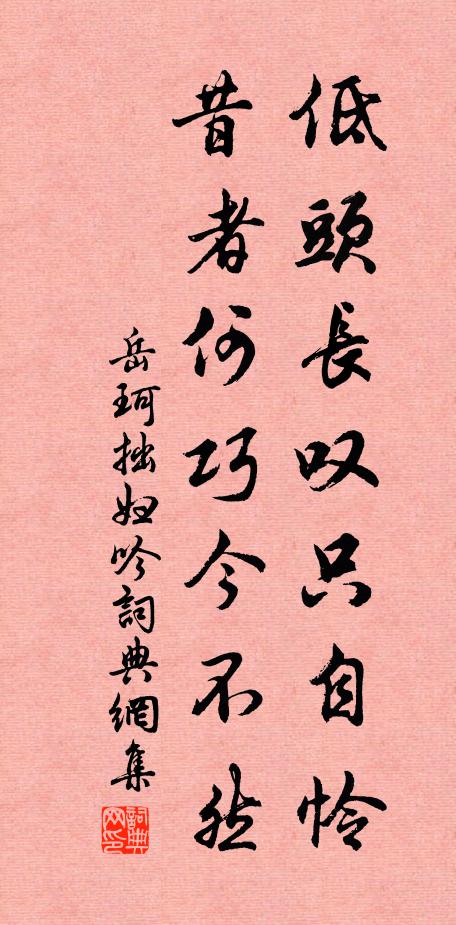 低頭長叹只自怜
昔者何巧今不然
岳珂拙妇吟詞典網集
詞典网印